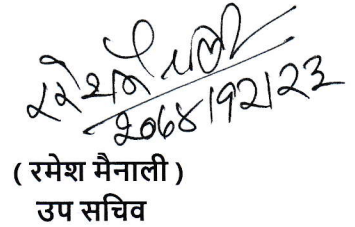 रमेश मैनाली
२०७४।१२।२३
( रमेश मैनाली )
उप सचिव